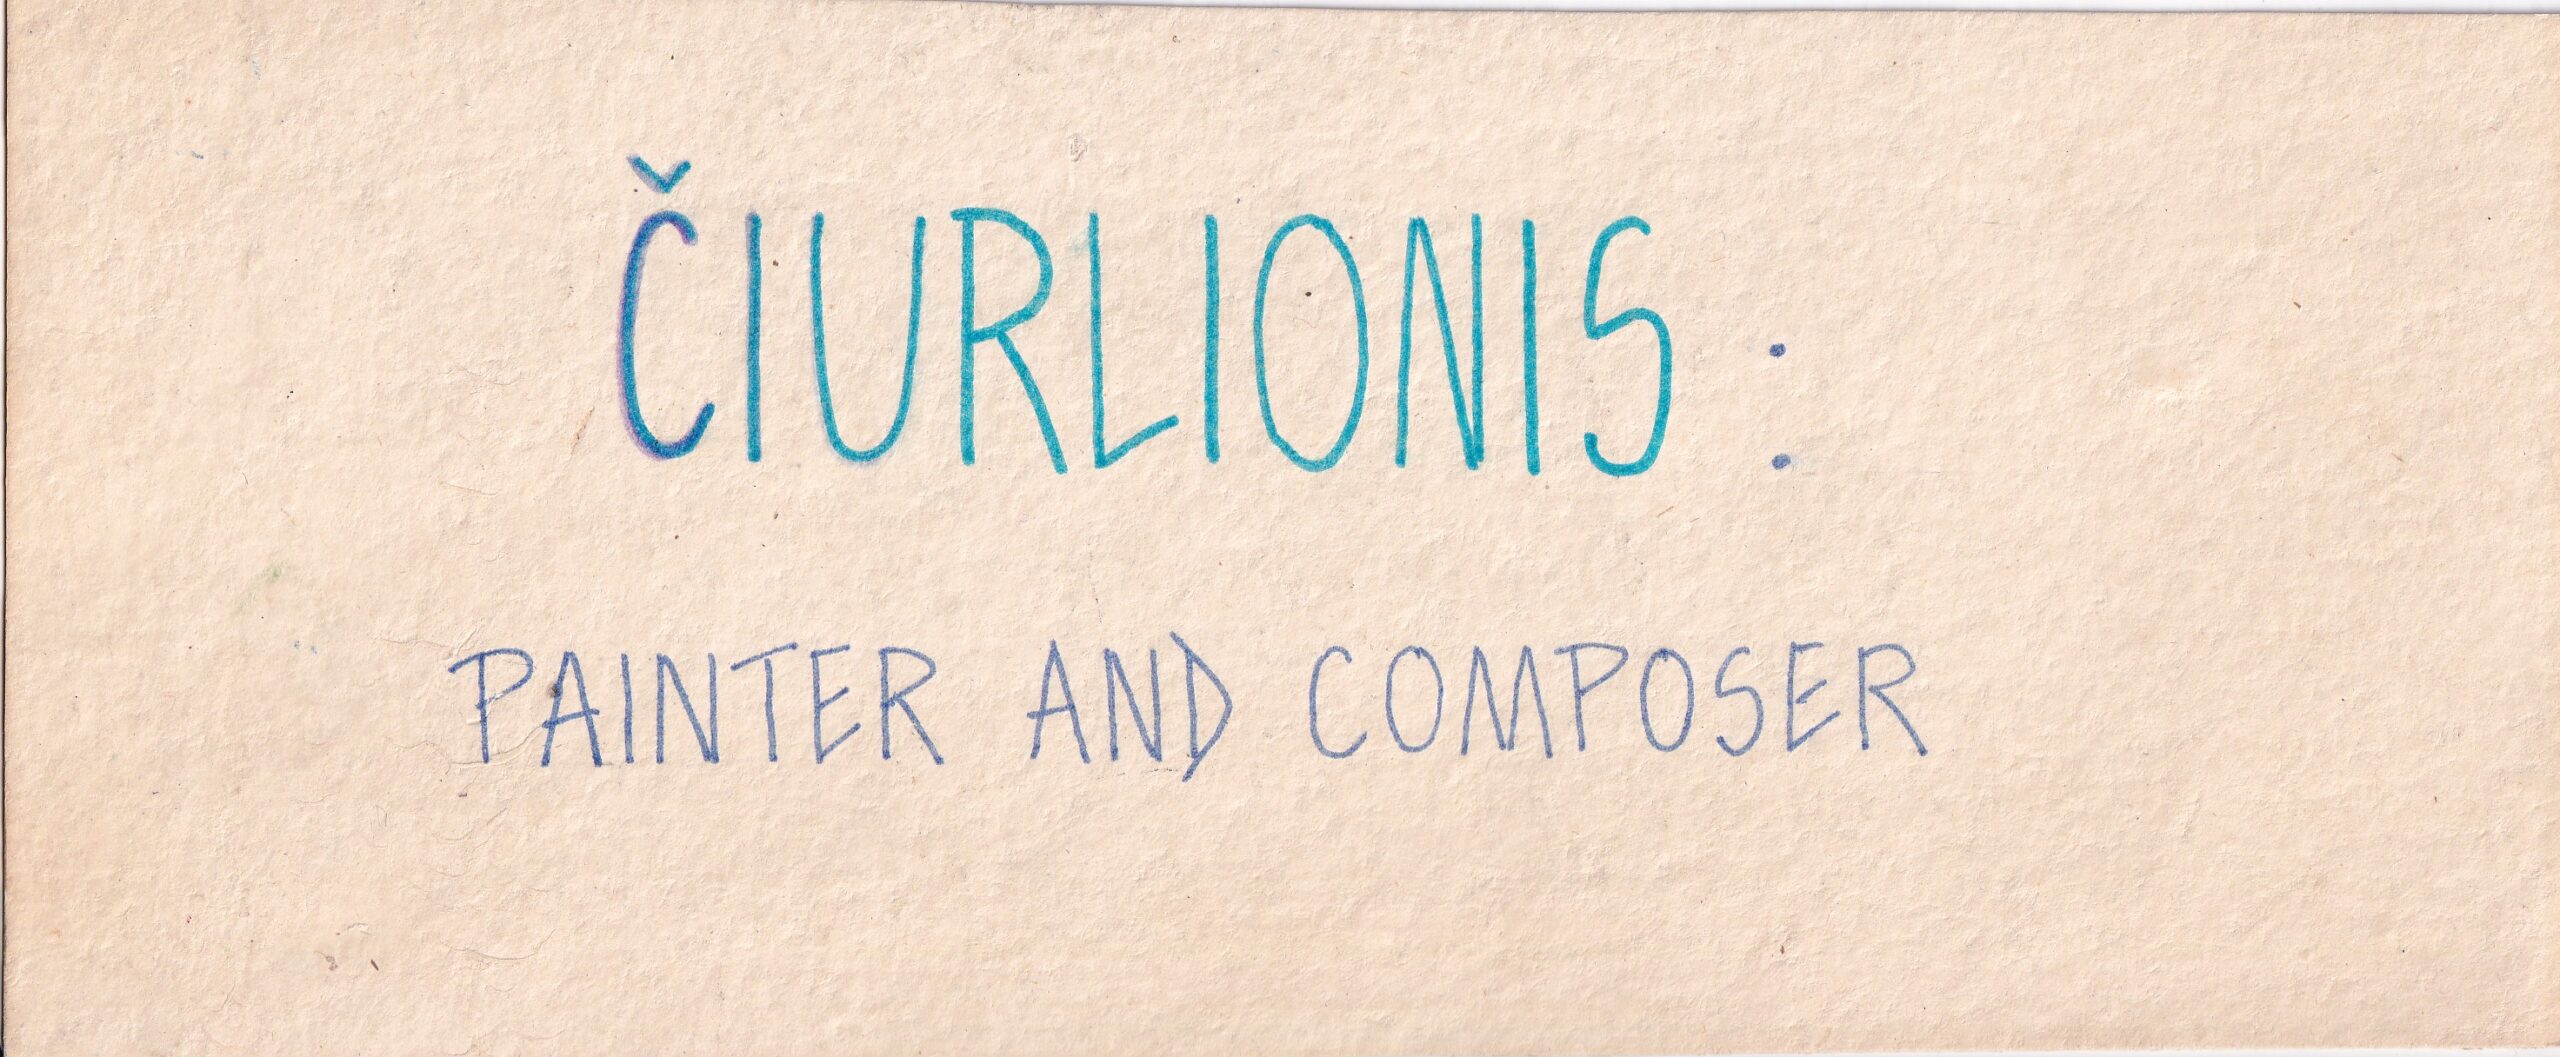 ČIURLIONIS :
PAINTER AND COMPOSER